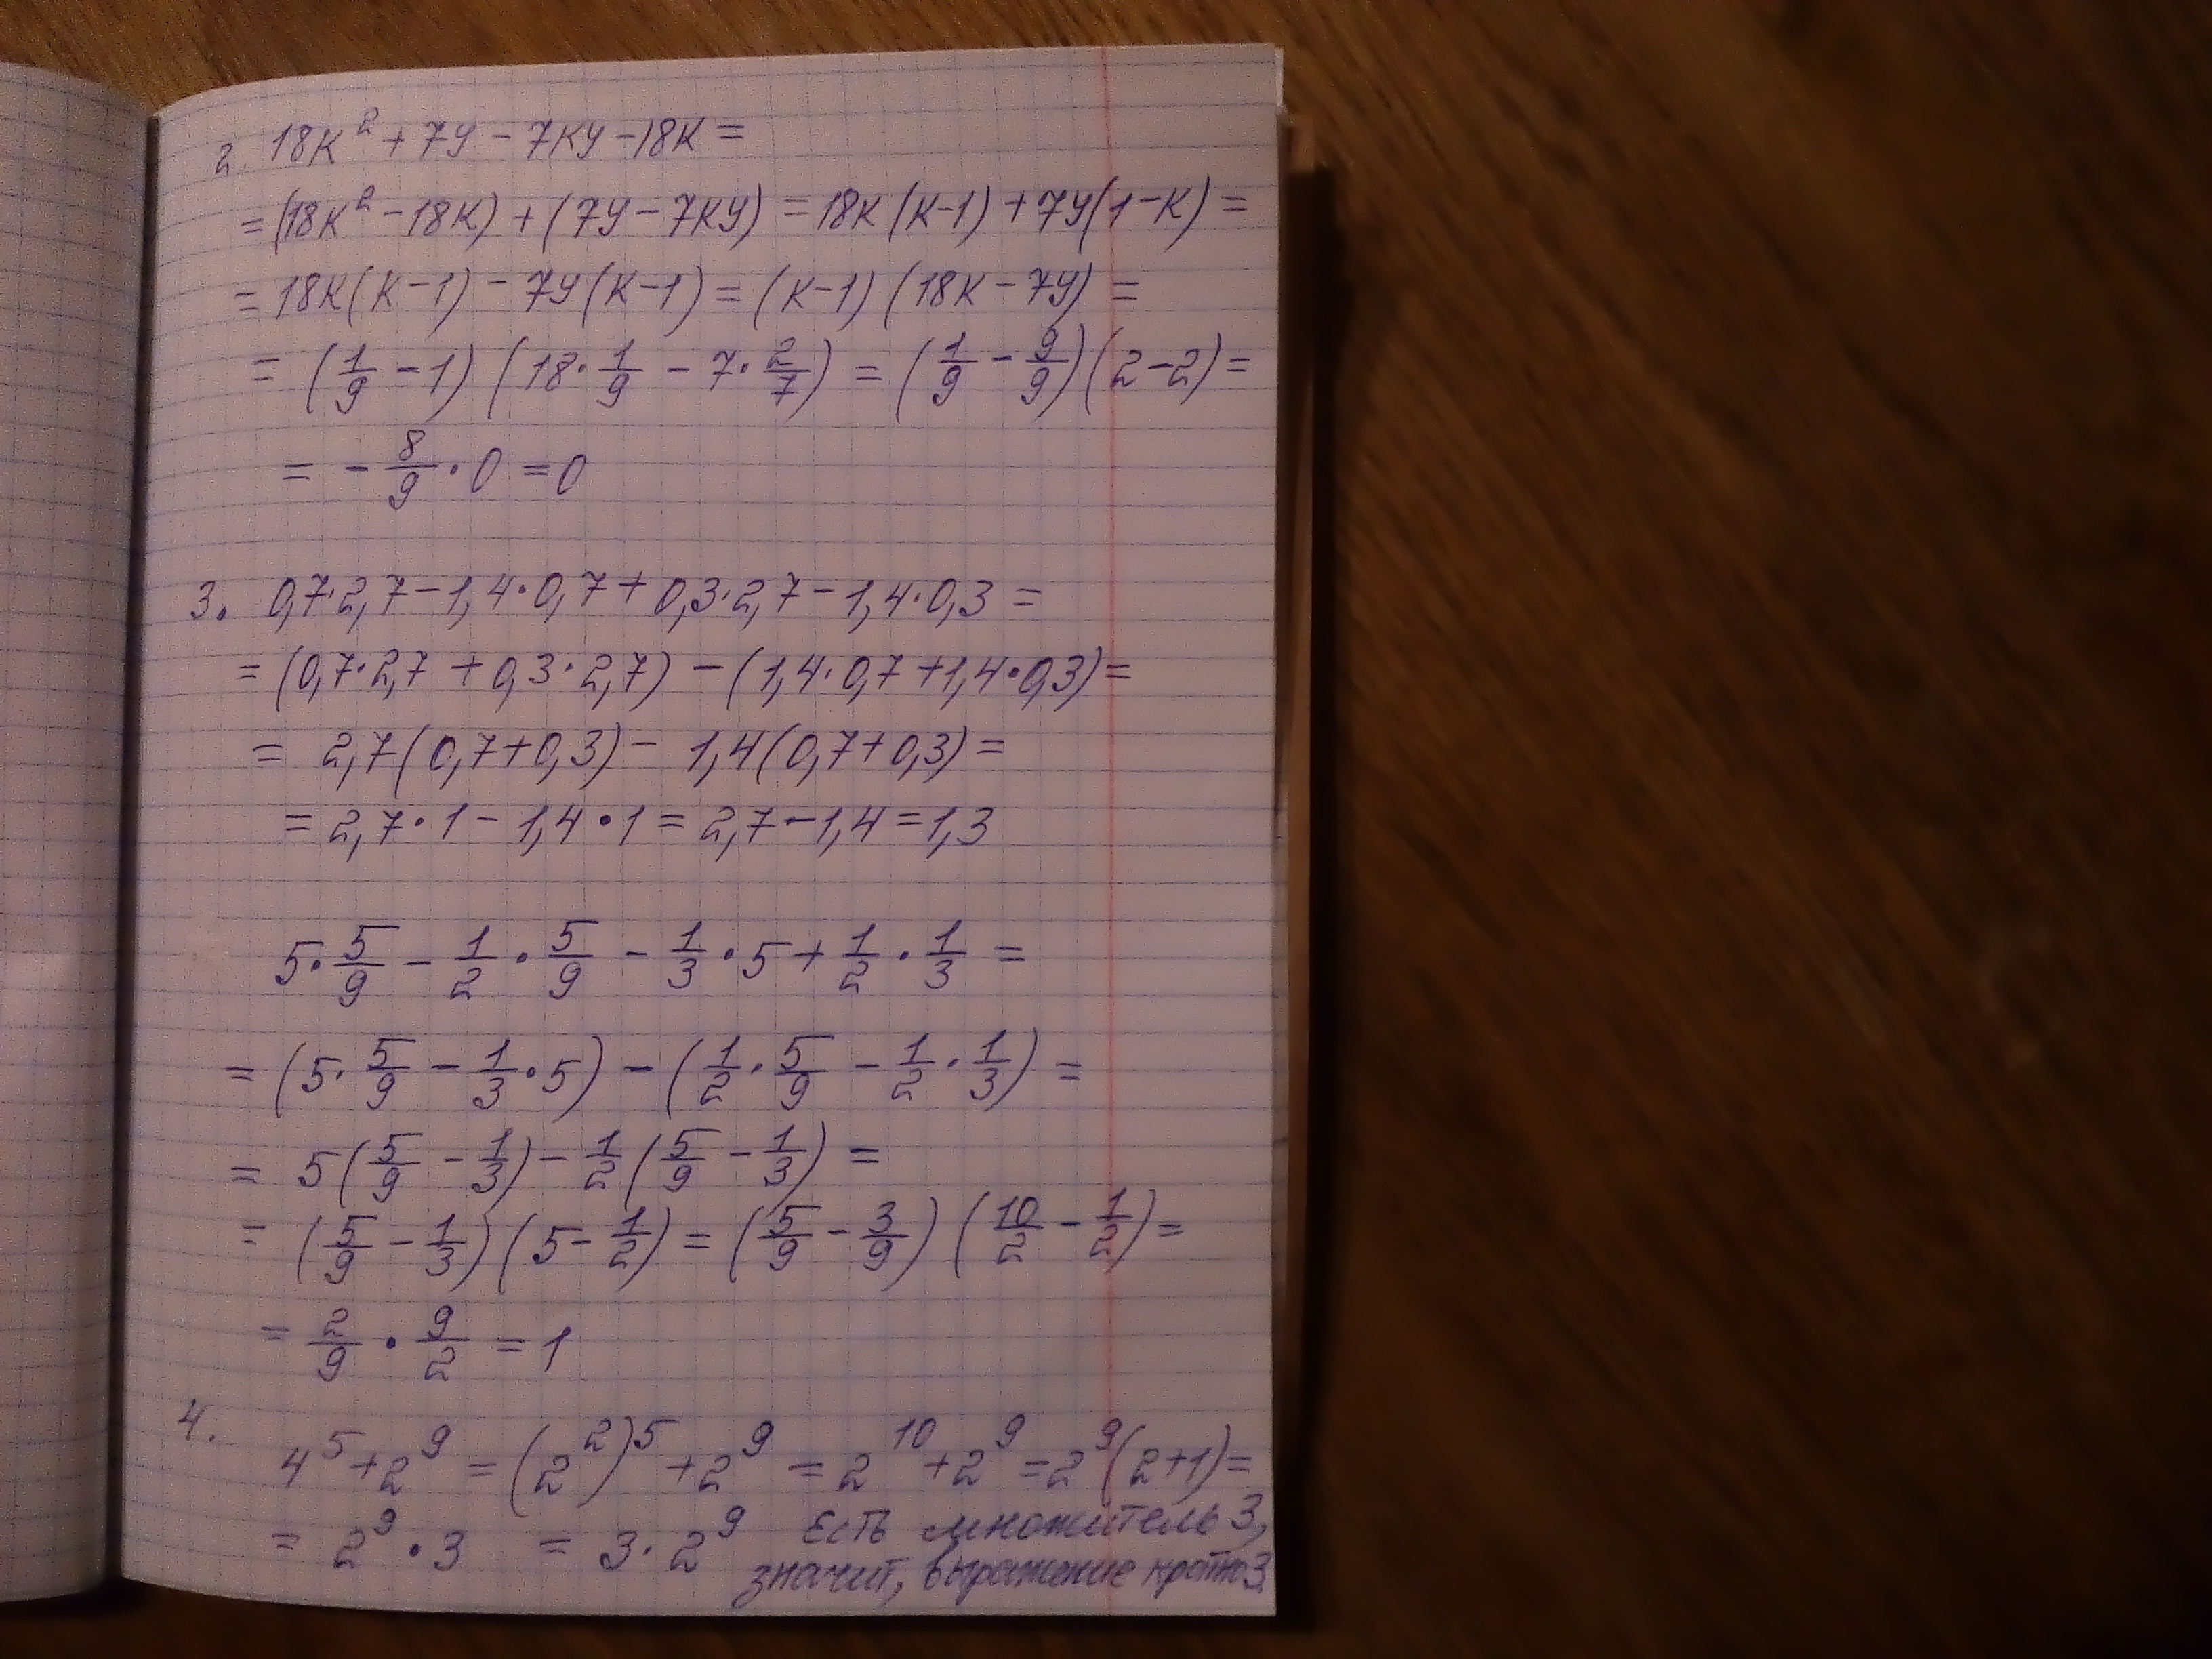 2. 18к² + 7у - 7ку - 18к =
= (18к² - 18к) + (7у - 7ку) = 18к(к-1) + 7у(1-к) =
= 18к(к-1) - 7у(к-1) = (к-1)(18к - 7у) =
= (1/9 - 1)(18·1/9 - 7·2/7) = (1/9 - 9/9)(2-2) =
= - 8/9 · 0 = 0
3. 0,7·2,7 - 1,4·0,7 + 0,3·2,7 - 1,4·0,3 =
= (0,7·2,7 + 0,3·2,7) - (1,4·0,7 + 1,4·0,3) =
= 2,7(0,7+0,3) - 1,4(0,7+0,3) =
= 2,7·1 - 1,4·1 = 2,7 - 1,4 = 1,3
5·5/9 - 1/2·5/9 - 1/3·5 + 1/2·1/3 =
= (5·5/9 - 1/3·5) - (1/2·5/9 - 1/2·1/3) =
= 5(5/9 - 1/3) - 1/2(5/9 - 1/3) =
= (5/9 - 1/3)(5 - 1/2) = (5/9 - 3/9)(10/2 - 1/2) =
= 2/9 · 9/2 = 1
4.
4⁵ + 2⁹ = (2²)⁵ + 2⁹ = 2¹⁰ + 2⁹ = 2⁹(2+1) =
= 2⁹·3 = 3·2⁹ Есть множитель 3,
значит, выражение кратно 3.